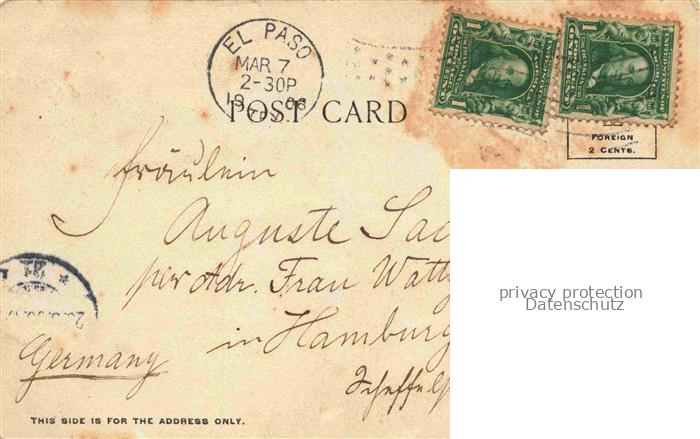 EL PASO
MAR 7
2-30P
1906
TEX.
POST CARD
FOREIGN
2 CENTS.
Fräulein
Auguste Sac
per Adr. Frau Watt
in Hamburg
Germany
Scheffel
THIS SIDE IS FOR THE ADDRESS ONLY.
privacy protection
Datenschutz